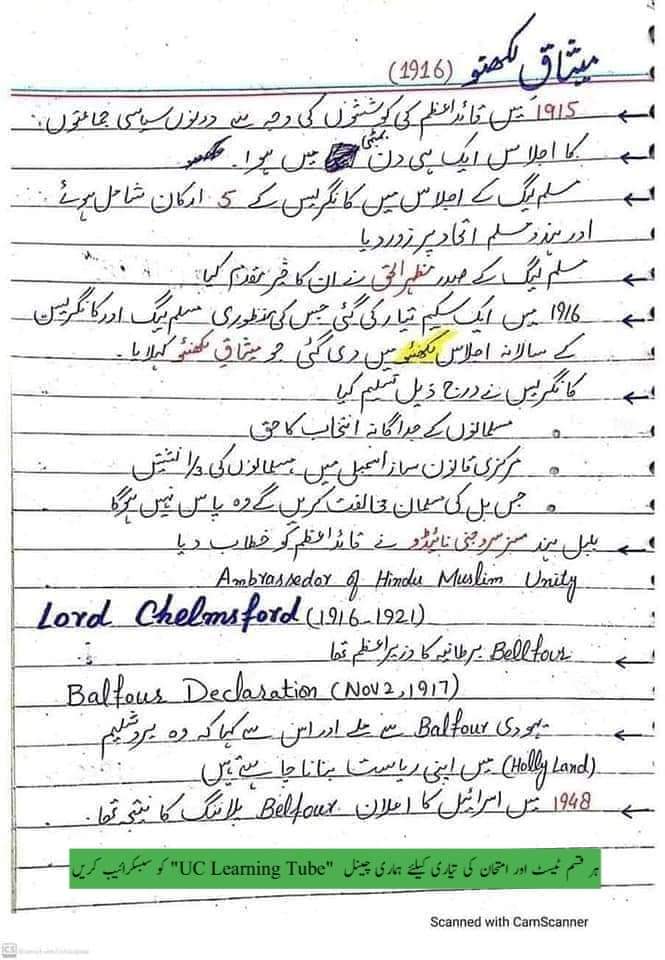 میثاق لکھنؤ (1916)
1915 میں قائداعظم کی کوششوں کی وجہ سے دونوں سیاسی جماعتوں
کا اجلاس ایک ہی دن بمبئی میں ہوا۔
مسلم لیگ کے اجلاس میں کانگریس کے 5 ارکان شامل ہوئے
اور ہندو مسلم اتحاد پر زور دیا
مسلم لیگ کے صدر مظہر الحق نے ان کا خیر مقدم کیا
1916 میں ایک سکیم تیار کی گئی جس کی منظوری مسلم لیگ اور کانگریس
کے سالانہ اجلاس لکھنئو میں دی گئی جو میثاق لکھنئو کہلایا۔
کانگریس نے درج ذیل تسلیم کیا
مسلمانوں کے جداگانہ انتخاب کا حق
مرکزی قانون ساز اسمبلی میں مسلمانوں کی 1/3 نشتیں
جس بل کی مسلمان مخالفت کریں گے وہ پاس نہیں ہوگا
بلبل ہند مسز سروجنی نائیڈو نے قائداعظم کو خطاب دیا
Ambrassedor of Hindu Muslim Unity
Lord Chelmsford (1916-1921)
Bellfour برطانیہ کا وزیراعظم تھا
Balfour Declaration (Nov 2, 1917)
یہودی Balfour سے ملے اور اس سے کہا کہ وہ یروشلیم
(Holly Land) میں اپنی ریاست بنانا چاہتے ہیں
1948 میں اسرائیل کا اعلان Belfour پلاننگ کا نتیجہ تھا۔
ہر قسم ٹیسٹ اور امتحان کی تیاری کیلئے ہماری چینل "UC Learning Tube" کو سبسکرائیب کریں
Scanned with CamScanner
CS Scanned with CamScanner